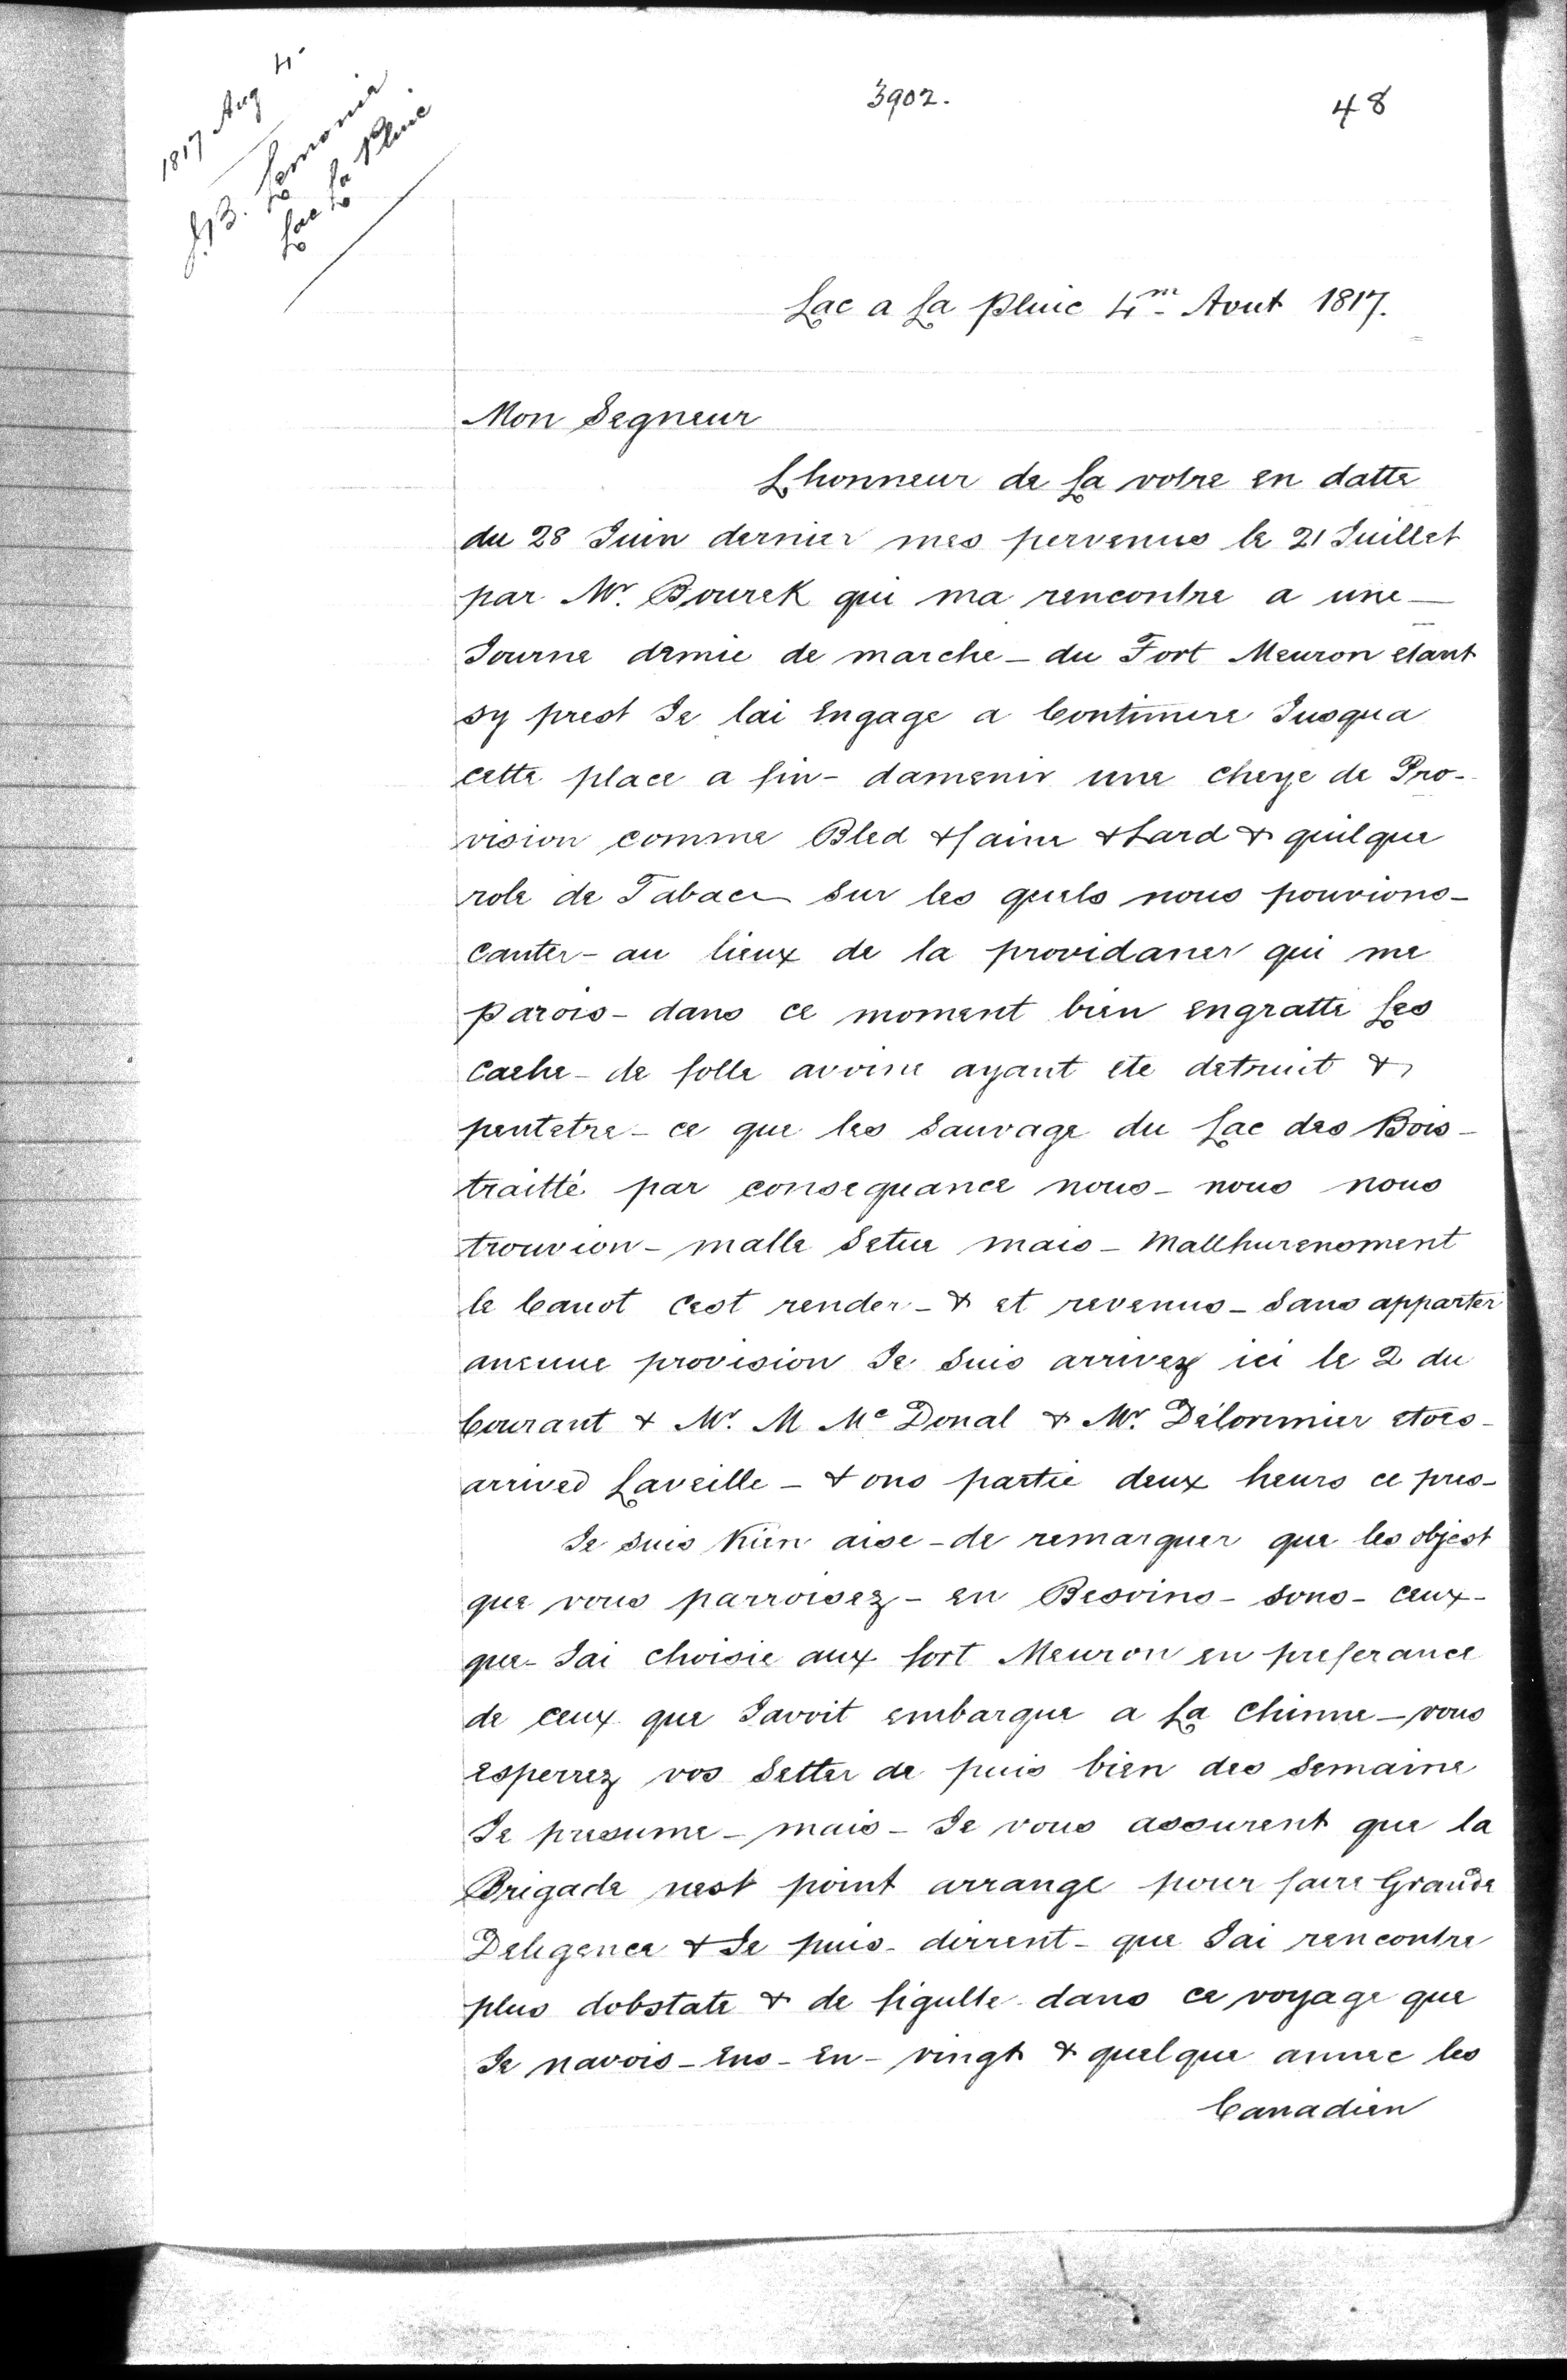 1817 Aug 4
J. B. Lemonia
Lac La Pluie
3902.
48
Lac a La Pluie 4m Aout 1817.
Mon Segneur
Lhonneur de La votre en datte
du 28 Juin dernier mes pervenus le 21 Juillet
par Mr. Bourek qui ma rencontre a une —
Journe demie de marche - du Fort Meuron etant
sy prest Je lai Engage a Continuere Jusqua
cette place a fin - damenir une cherge de Pro-
vision comme Bled & faine & Lard & quilque
role de Tabace sur les quels nous pouvions -
Canter - au lieux de la providaner qui me
parois - dans ce moment bien engratte Les
Cache - de folle avoine ayant ete detruit &
peutetre - ce que les Sauvage du Lac des Bois -
traitté par consequance nous - nous nous
trouvion - malle Setue mais - Mallhurensment
le Canot cest render - & et revenus - Sans apparter
aucune provision Je Suis arrivez ici le 2 du
Courant & Mr. M Mc Donal & Mr. Délorimier etois -
arrived Laveille - & ons partie deux heurs ce pres -
Je suis Kien aise - de remarquer que les objest
que vous parroisez - en Besoins - sons - ceux -
que - Jai choisie aux fort Meuron en preferance
de ceux que Javoit embarque a La Chinne - vous
esperrez vos Setter de puis bien des Semaine
Je presume - mais - Je vous assurent que la
Brigade nest point arrange pour faire Grande
Deligence & Je puis - dirrent - que Jai rencontre
plus dobstate & de figulte dans ce voyage que
Je navois - Eus - En - vingt & quelque annee les
Canadien